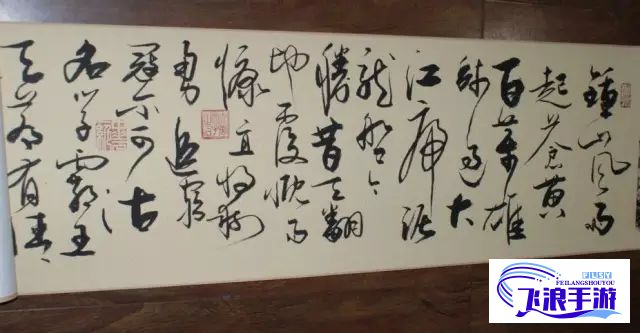 鍾山風雨
起蒼黄
百萬雄
師過大
江虎踞
龍盤今
勝昔天翻
地覆慨而
慷宜将剩
勇追窮
寇不可沽
名学霸王
天若有情
FLSY
FEILANGSHOUYOU
飞浪手游